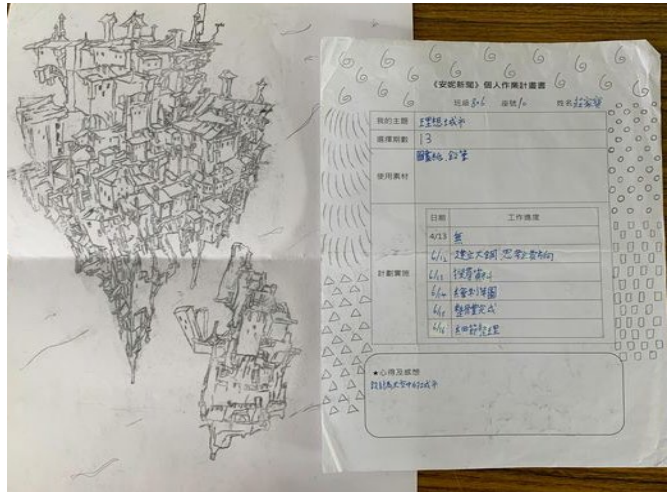 《安妮新聞》個人作業計畫書
班級 806 座號 10 姓名 莊
我的主題 理想城市
選擇期數 13
使用素材 圖畫紙、鉛筆
計劃實施
日期 工作進度
4/13 無
6/12 建立大綱 思考企劃方向
6/13 搜尋資料
繪製草圖
6/15 整體完成
6/16 細節處理
★心得及感想
天空中的城市